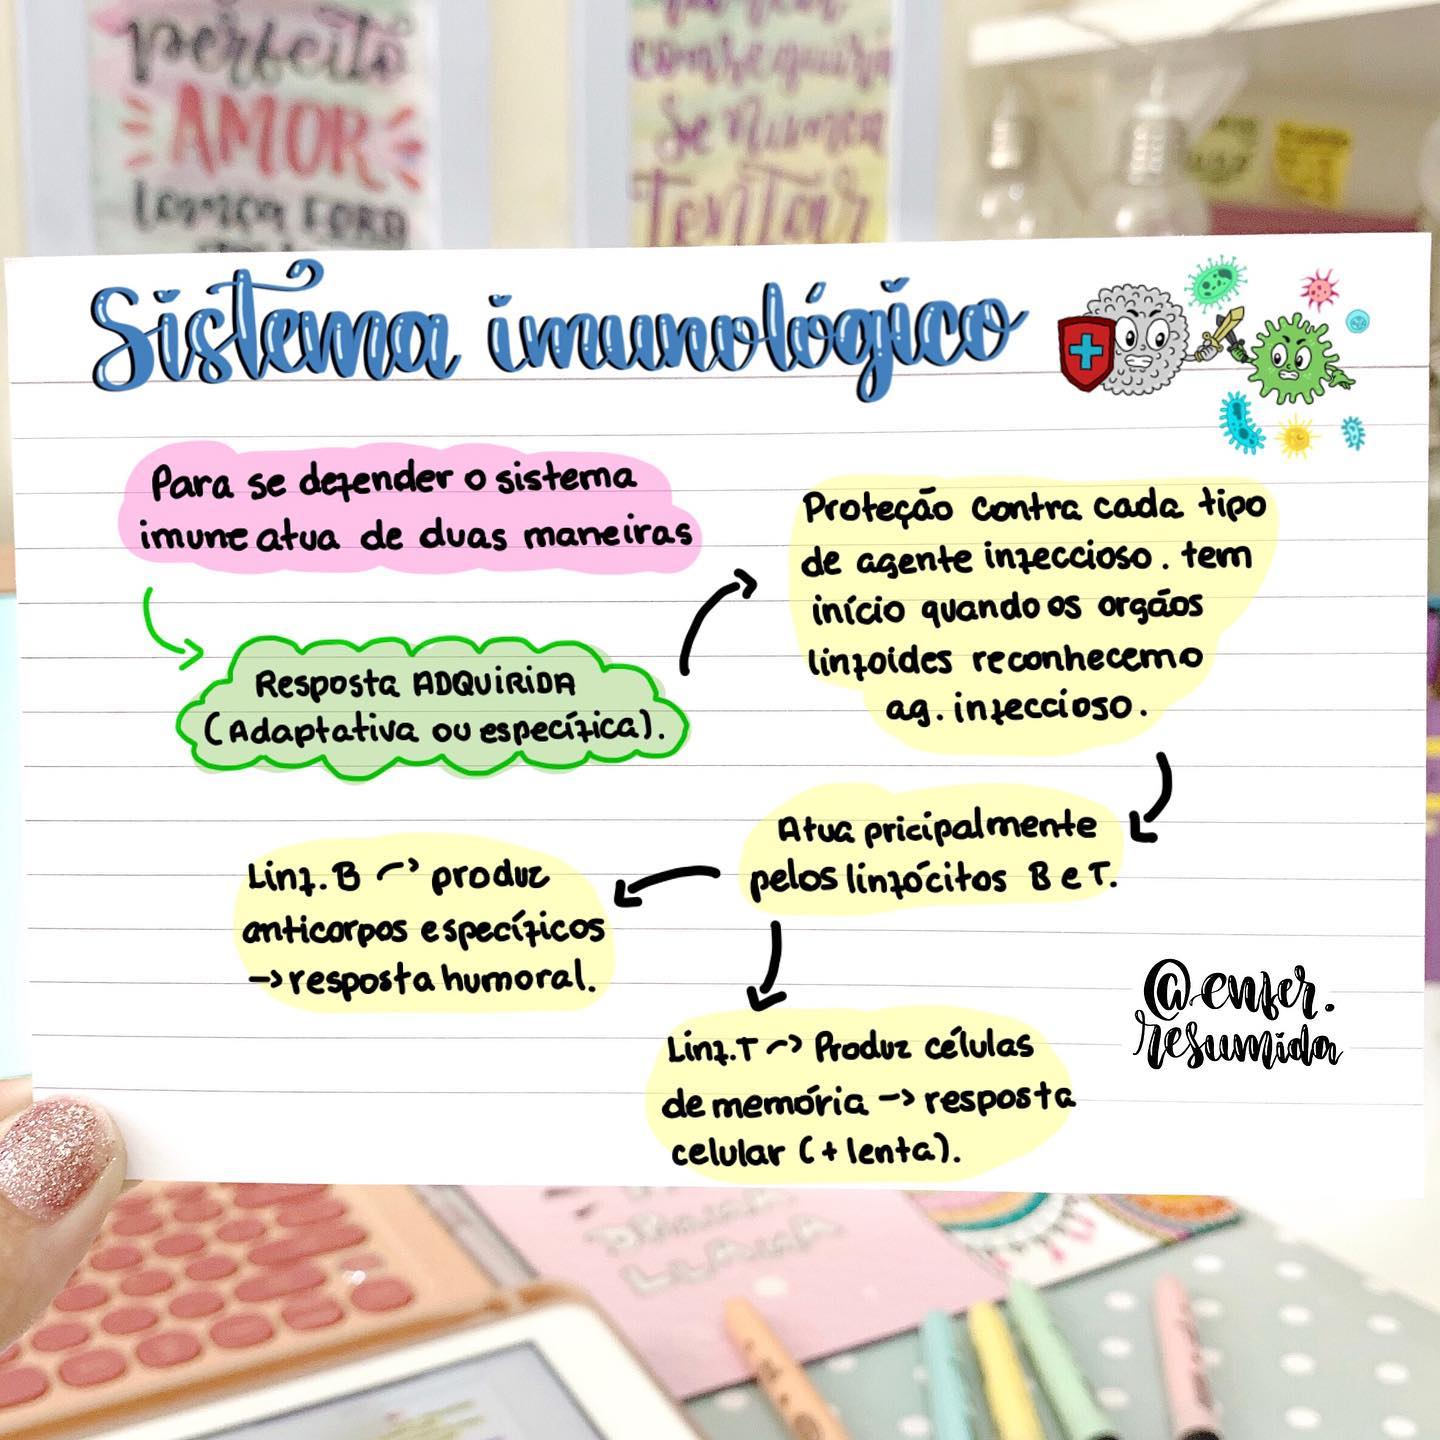 perfeito
AMOR
lança FORA
conseguirá
se nunca
tentar
Sistema imunológico
Para se defender o sistema
imune atua de duas maneiras
Resposta ADQUIRIDA
(Adaptativa ou específica).
Proteção contra cada tipo
de agente infeccioso. tem
início quando os orgãos
linfoides reconhecem o
ag. infeccioso.
Atua pricipalmente
pelos linfócitos B e T.
Linf. B → produz
anticorpos específicos
→ resposta humoral.
Linf. T → Produz células
de memória → resposta
celular (+ lenta).
@enfer.
resumida